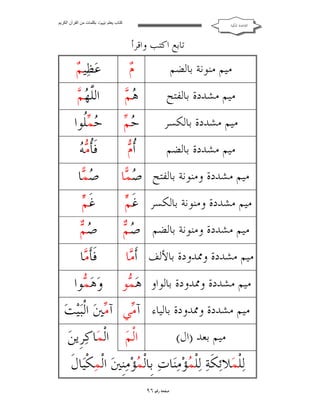 كتاب يعلم بيبوت بكلمات من القرآن الكريم
القاعدة المكية
تابع اكتب واقرأ
ميم منونة بالضم مٌ عَظِيمٌ
ميم مشددة بالفتح هُمَّ اللَّهُمَّ
ميم مشددة بالكسر حُمِّ حُمِّلُوا
ميم مشددة بالضم أُمُّ فَأُمُّهُ
ميم مشددة ومنونة بالفتح صُمًّا صُمًّا
ميم مشددة ومنونة بالكسر غَمٍّ غَمٍّ
ميم مشددة ومنونة بالضم صُمٌّ صُمٌّ
ميم مشددة وممدودة بالألف أَمَّا فَأَمَّا
ميم مشددة وممدودة بالواو هَمُّو وَهَمُّوا
ميم مشددة وممدودة بالياء آمِّي آمِّينَ الْبَيْتَ
ميم بعد (ال) الْمَ الْمَاكِرِينَ
لِلْمَلائِكَةِ لِلْمُؤْمِنَاتِ بِالْمُؤْمِنِينَ الْمِكْيَالَ
صفحة رقم ٩٦